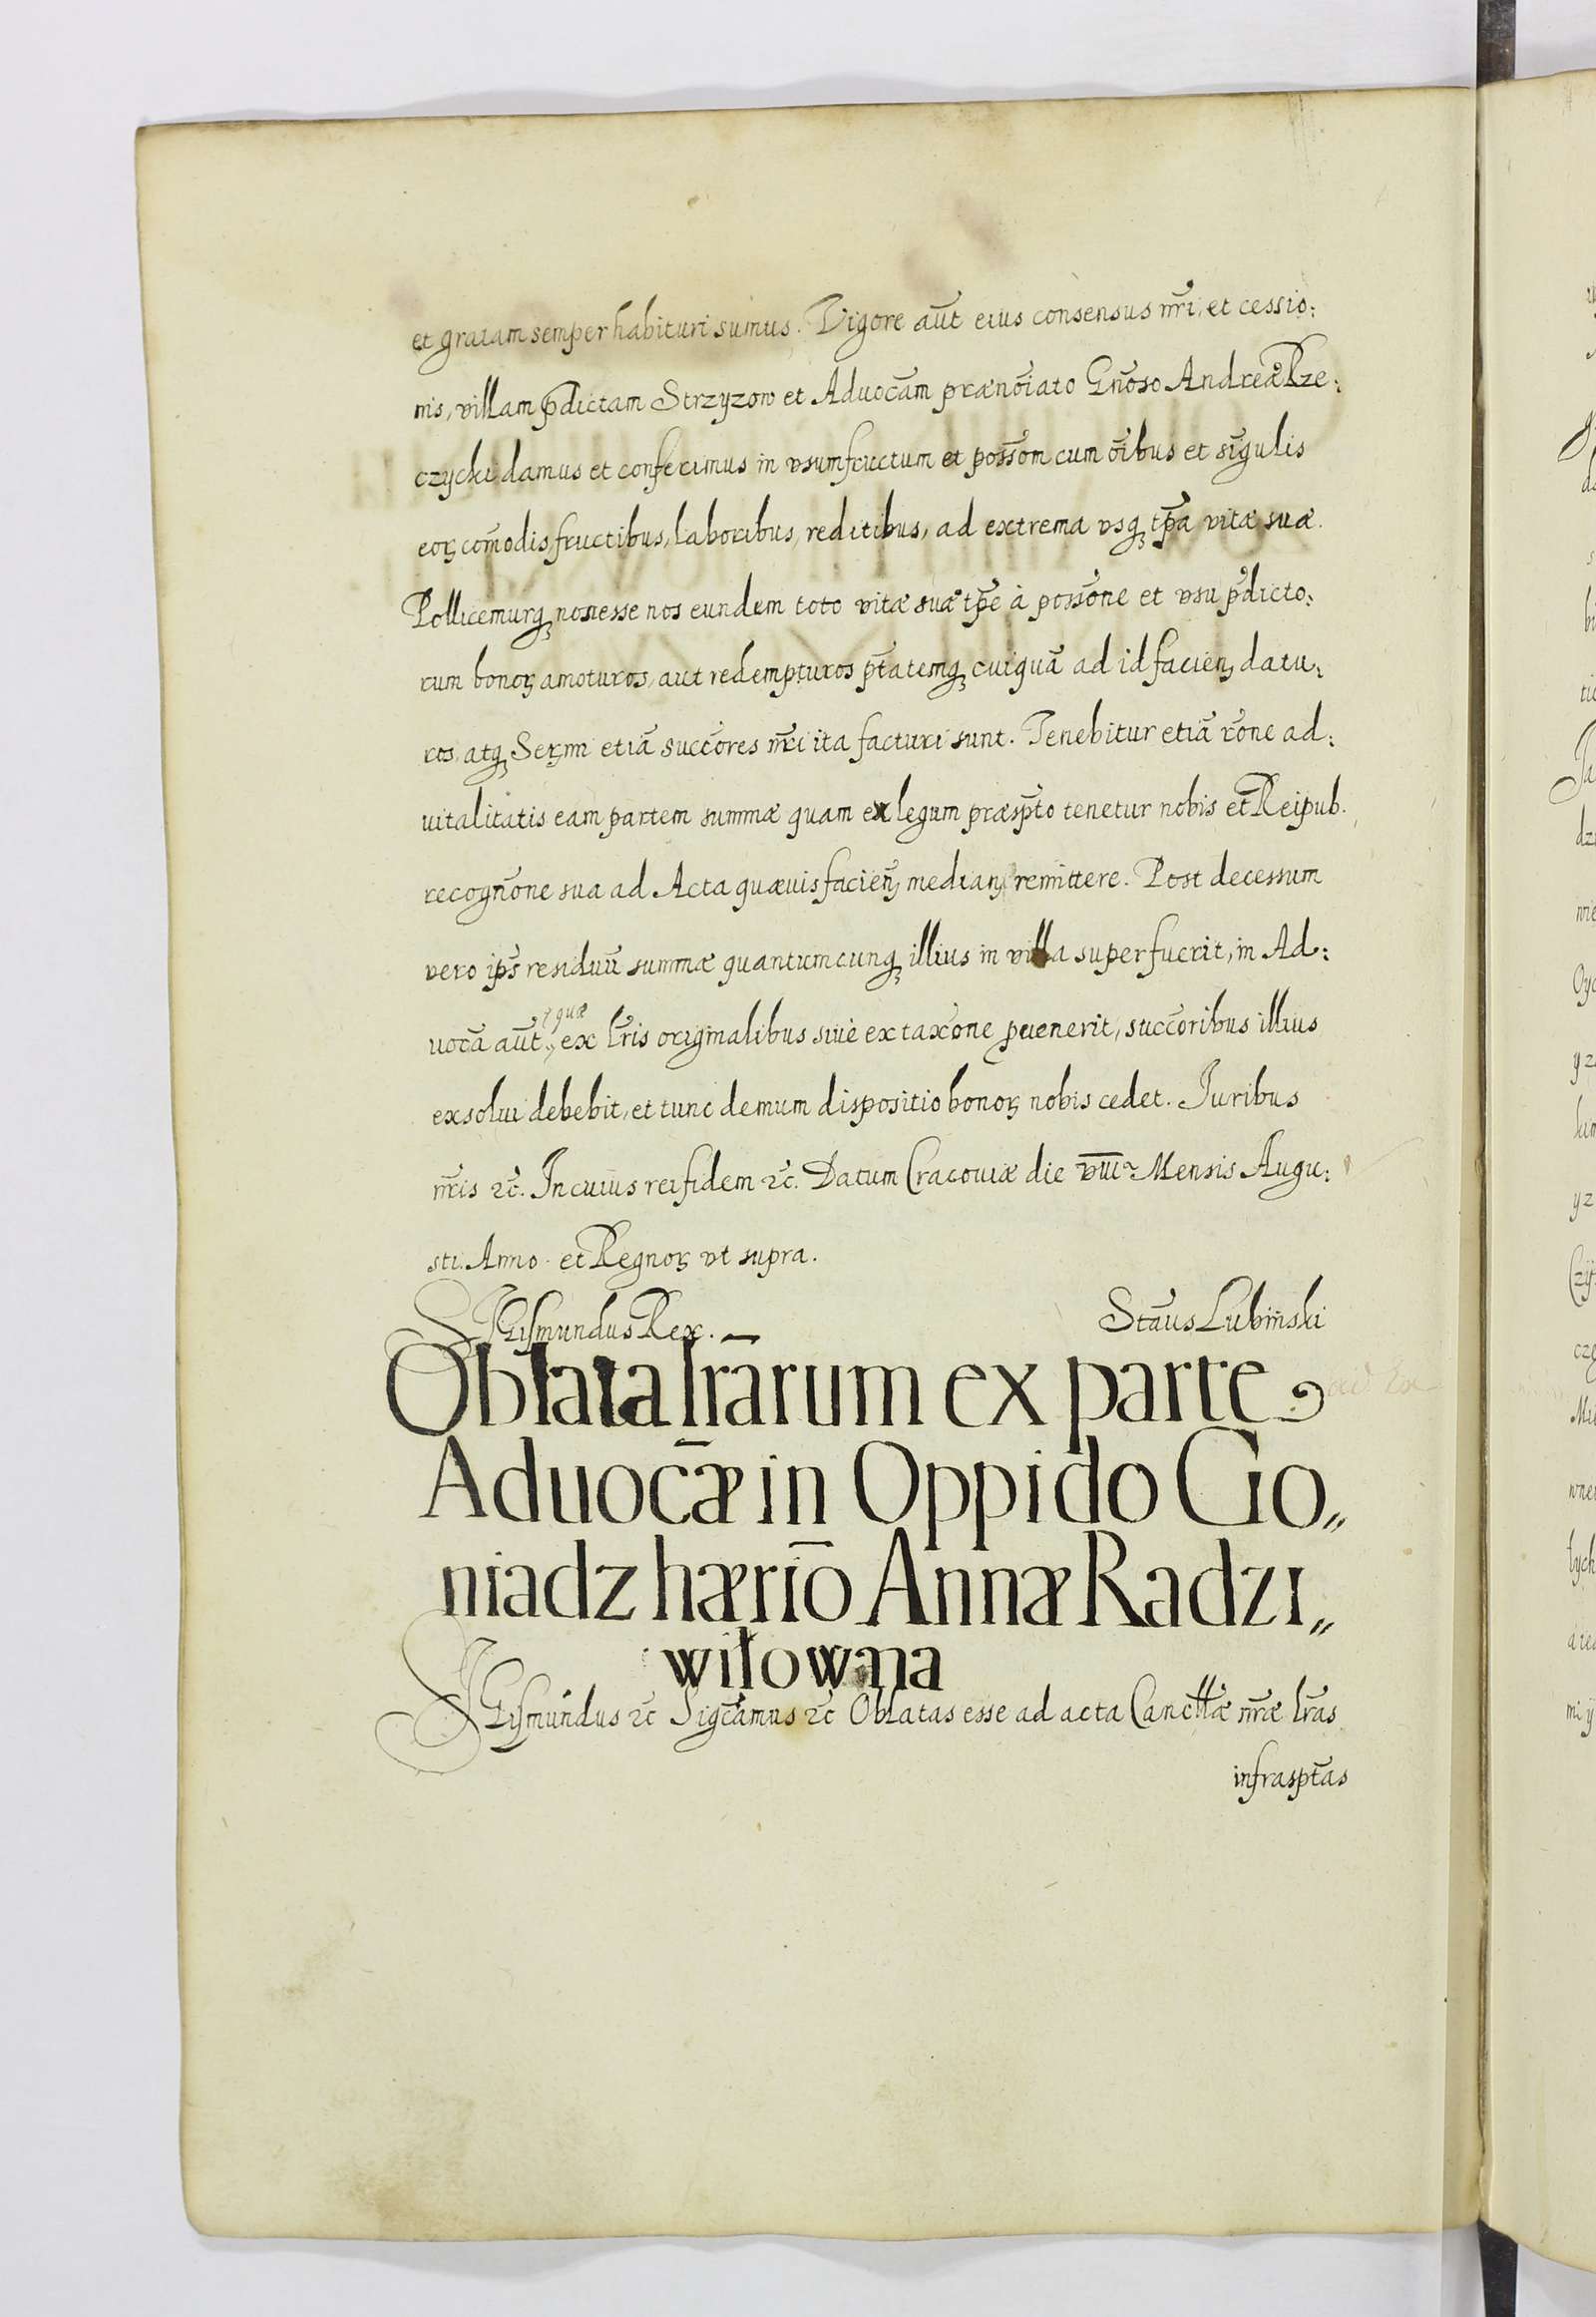 et gratam semper habituri sumus. Vigore aūt eius consensus nr̄i, et cessio:
nis, villam p̄dictam Strzyzow et Aduocām prænōiato Gn̄oso Andreæ Rze:
czycki damus et conferimus in vsumfructum et possōm cum ōibus et singulis
eorꝝ com̄odis, fructibus, laboribus, reditibus, ad extrema vsqꝫ tp̄a vitæ suæ.
Pollicemurqꝫ non esse nos eundem toto vitæ suæ tp̄e à possōne et vsu p̄dicto:
rum bonorꝝ amoturos, aut redempturos p̄tatemqꝫ cuiquā ad id facienꝫ datu:
ros, atqꝫ Serꝫmi etiā succōres nr̄i ita facturi sunt. Tenebitur etiā rōne ad:
uitalitatis eam partem summæ quam ex legum præsp̄to tenetur nobis et Reipub.
recogn̄one sua ad Acta quæuis facien̄ꝫ medianꝫ remittere. Post decessum
vero ips̄ residuū summæ quantumcunqꝫ illius in villa superfuerit, in Ad:
uocā aūt, quæ ex lr̄is originalibus siue ex taxōne ꝑuenerit, succōribus illius
exsolui debebit, et tunc demum dispositio bonorꝝ nobis cedet. Iuribus
nr̄is ꝛc̄. In cuius rei fidem ꝛc̄. Datum Cracouiæ die VIII Mensis Augu:
sti. Anno et Regnorꝝ vt supra.
Sigismundus Rex. Stāus Lubinski
Oblata lr̄arum ex parte
Aduocāæ in Oppido Go„
niadz hærīo Annæ Radzi„
wiłowna
Sigismundus ꝛc̄ Sigcāmus ꝛc̄ Oblatas esse ad acta Cancllæ nr̄æ lr̄as
infrasp̄tas